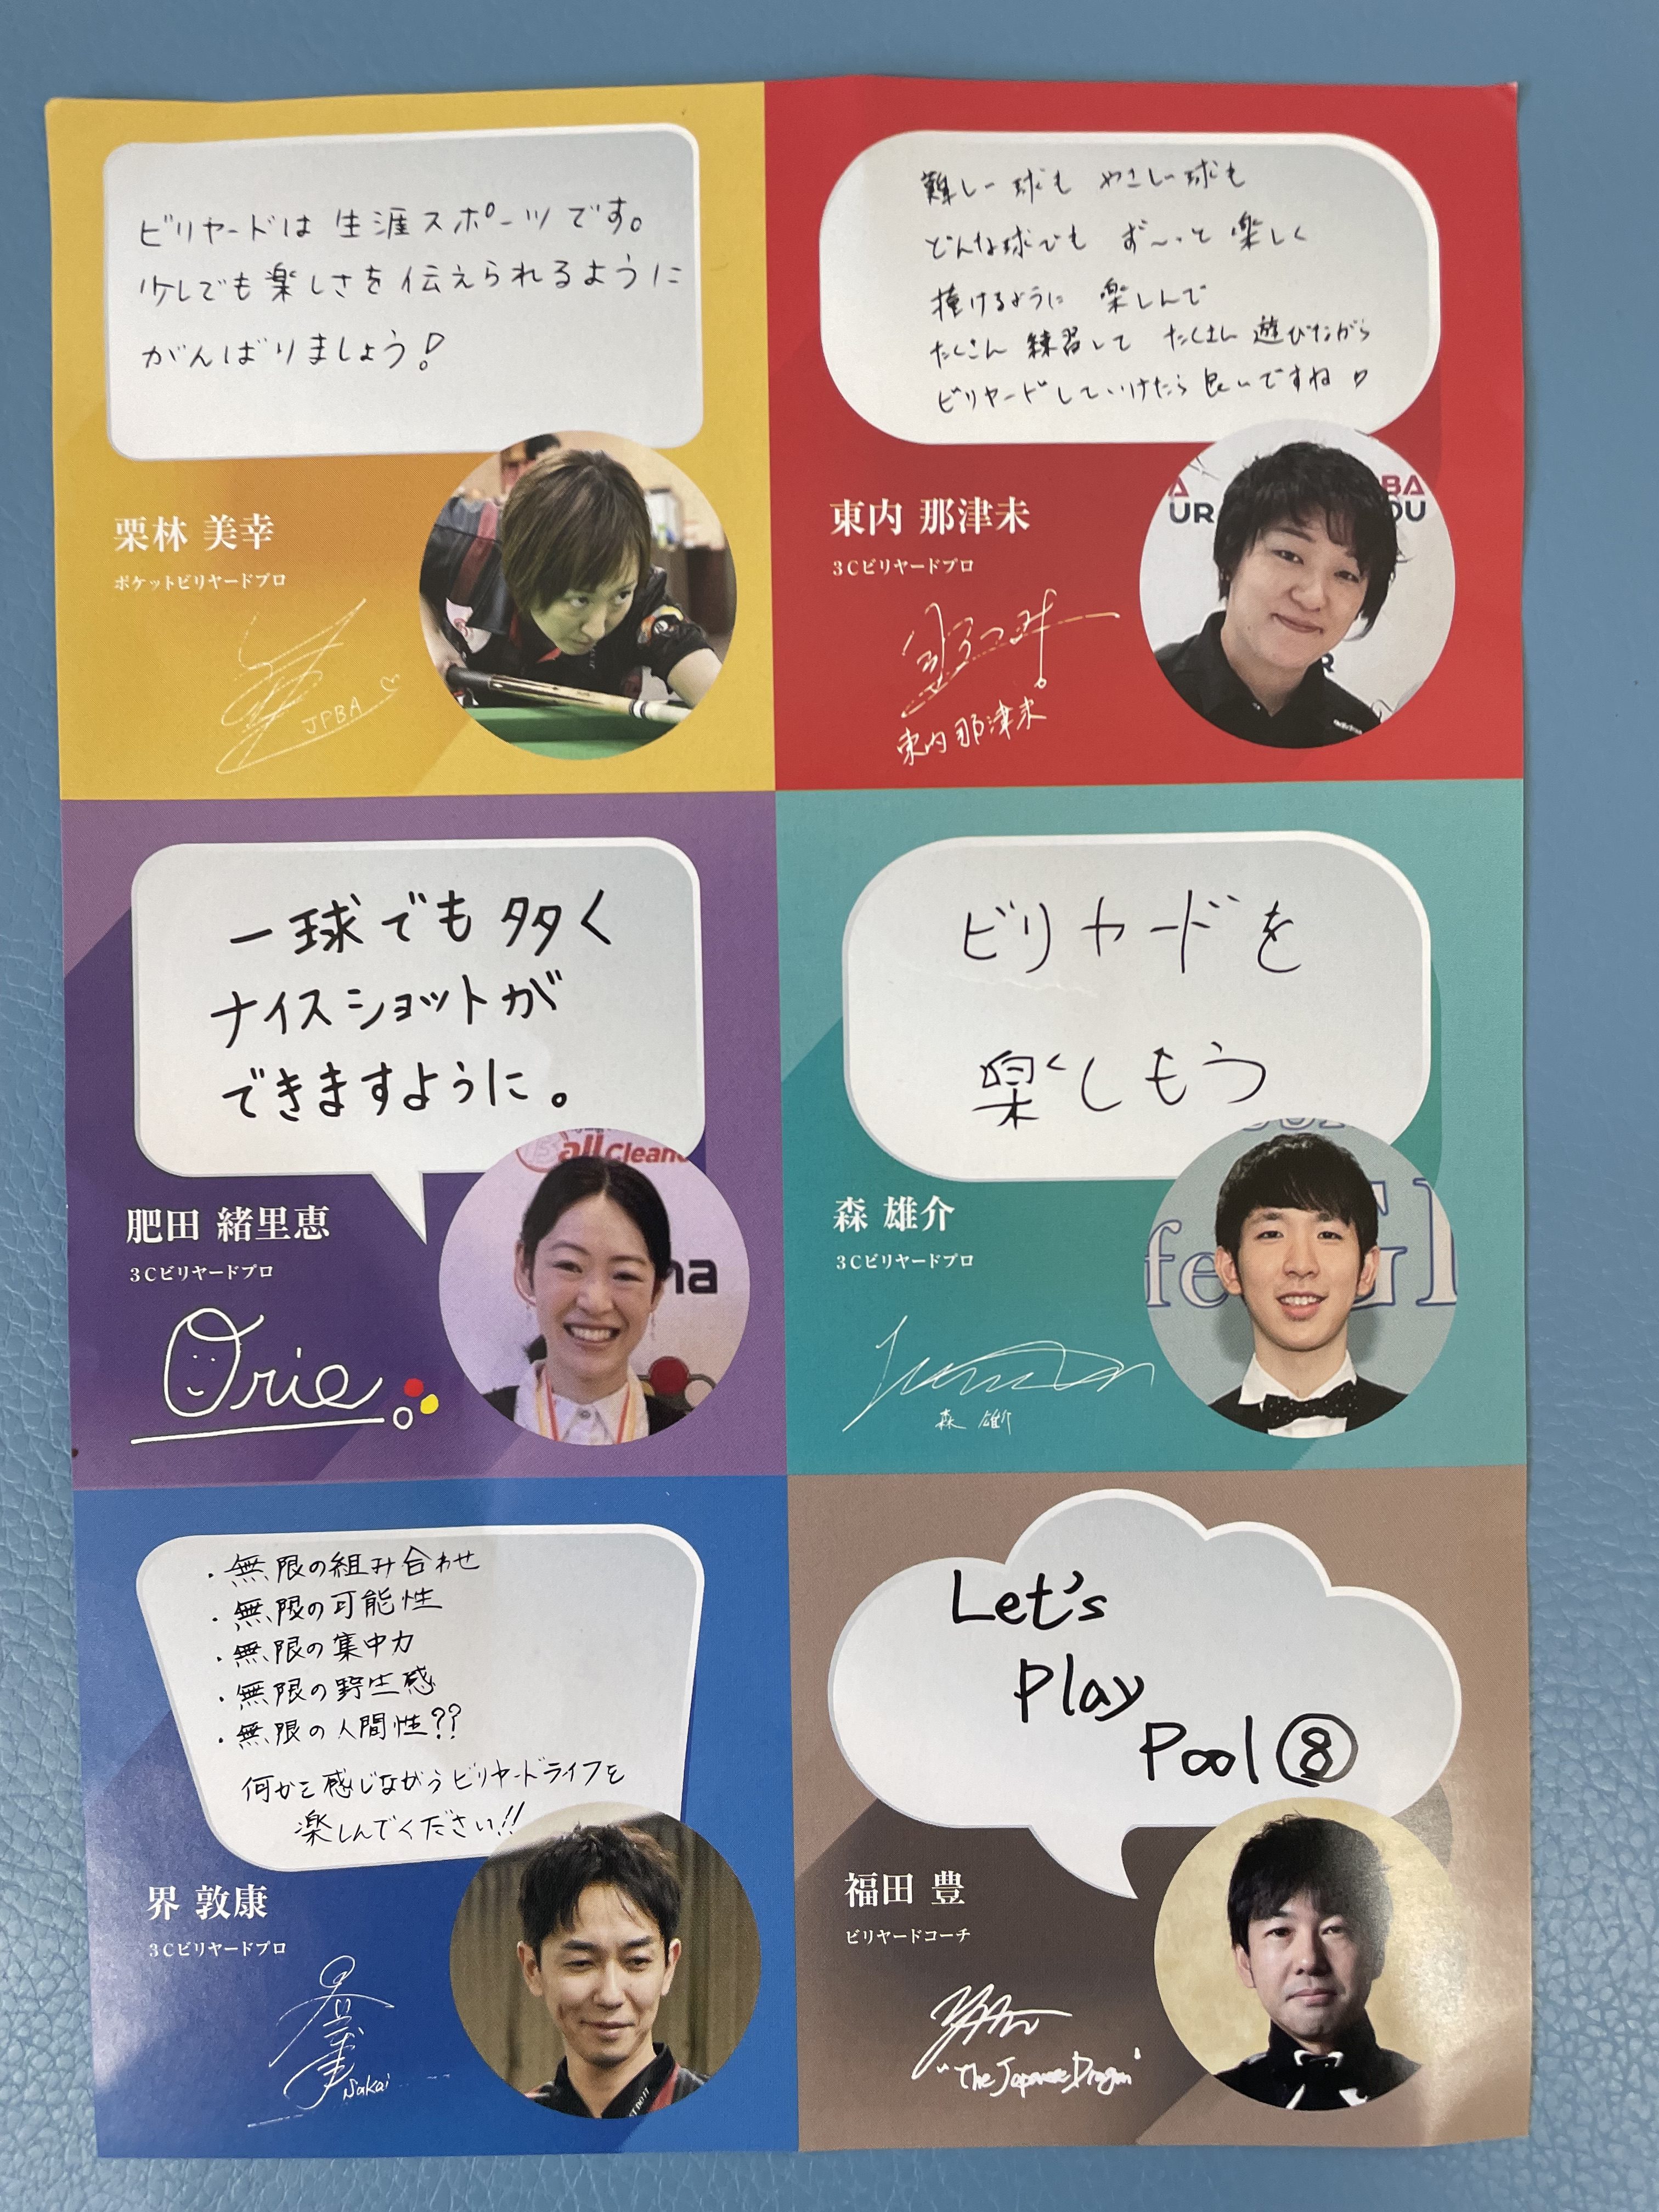 ビリヤードは 生涯スポーツです。
少しでも楽しさを 伝えられるように
がんばりましょう!
栗林 美幸
ポケットビリヤードプロ
JPBA
難しー球も やさしー球も
どんな球でも ず〜っと 楽しく
撞けるように 楽しんで
たくさん 練習して たくさん 遊びながら
ビリヤードしていけたら良いですね
BA
UR
OU
R
東内 那津未
3Cビリヤードプロ
東内那津未
一球でも多く
ナイスショットが
できますように。
all Clean
na
肥田 緒里恵
3Cビリヤードプロ
Orie
ビリヤードを
楽しもう
fe
森 雄介
3Cビリヤードプロ
森 雄介
・無限の組み合わせ
・無限の可能性
・無限の集中力
・無限の野生感
・無限の人間性??
何かを感じながらビリヤードライフを
楽しんでください!!
界 敦康
3Cビリヤードプロ
Sakai
Let's
Play
Pool⑧
福田 豊
ビリヤードコーチ
"The Japanese Dragon"